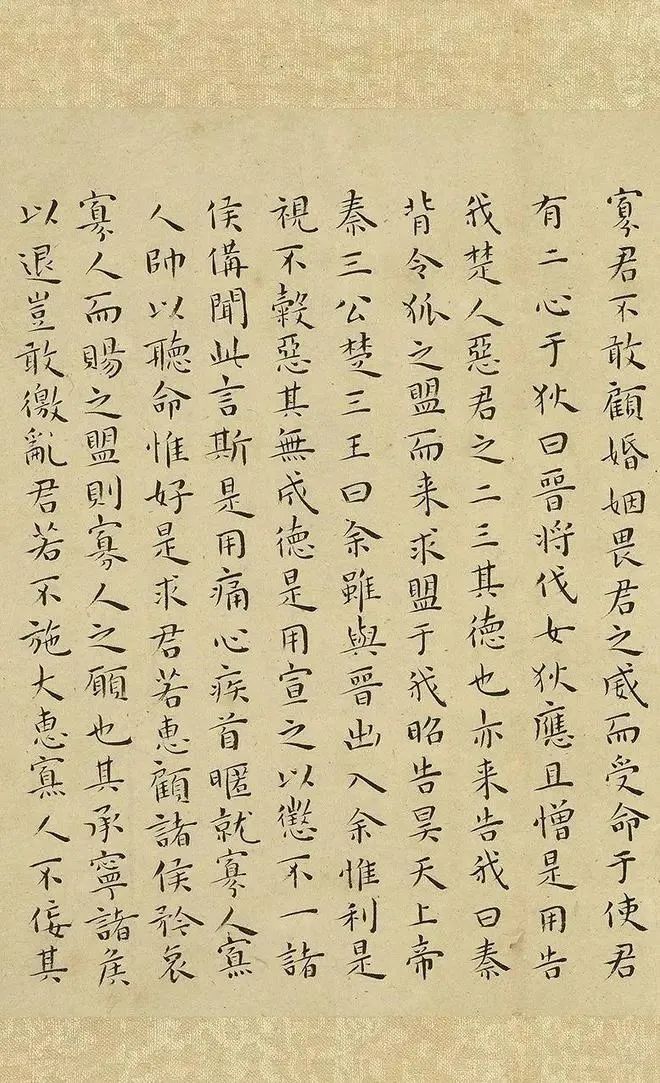 寡君不敢顧婚姻畏君之威而受命于使君
有二心于狄曰晉將伐女狄應且憎是用告
我楚人惡君之二三其德也亦来告我曰秦
背令狐之盟而来求盟于我昭告昊天上帝
秦三公楚三王曰余雖與晉出入余惟利是
視不穀惡其無成德是用宣之以懲不一諸
侯備聞此言斯是用痛心疾首暱就寡人寡
人帥以聽命惟好是求君若惠顧諸侯矜哀
寡人而賜之盟則寡人之願也其承寧諸侯
以退豈敢徼亂君若不施大惠寡人不佞其